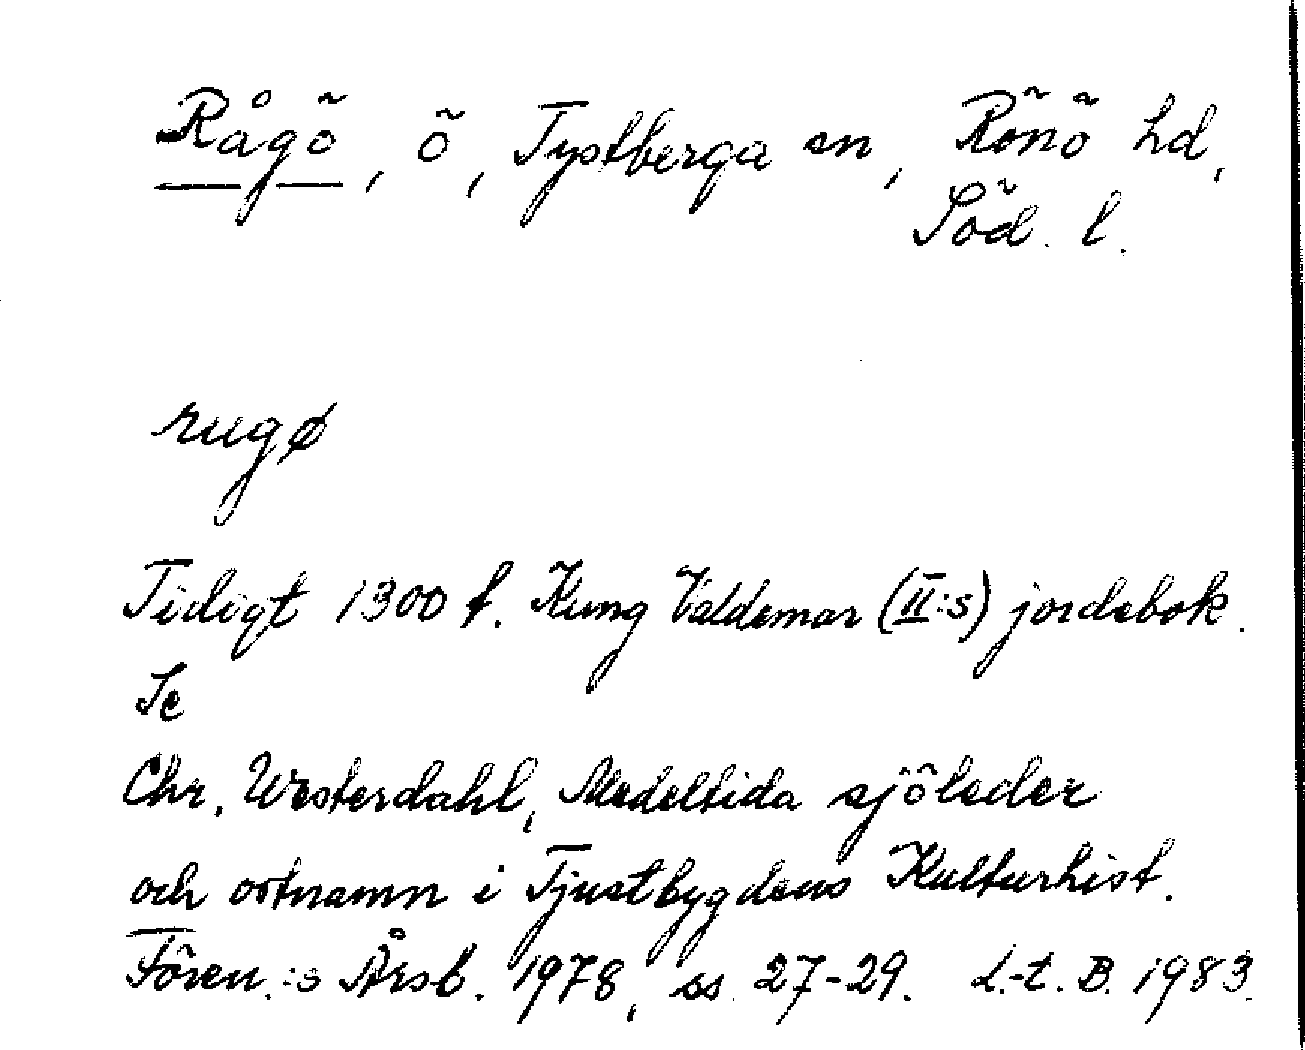 Rågö, ö, Tystberga sn, Rönö hd,
Söd. l.
rugø
Tidigt 1300 t. Kung Valdemar (II:s) jordebok.
Se
Chr. Westerdahl, Medeltida sjöleder
och ortnamn i Tjustbygdens Kulturhist.
Fören.:s Årsb. 1978, ss. 27-29. L.-t. B. 1983.